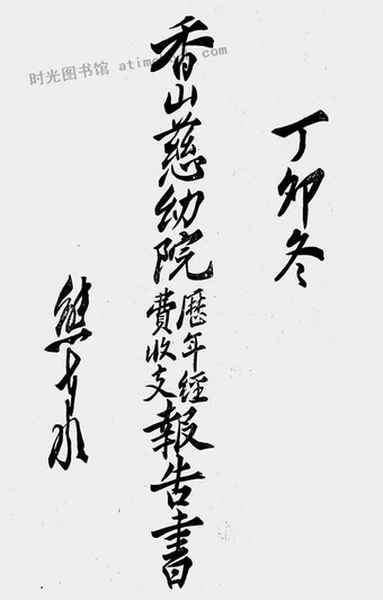 丁卯冬
香山慈幼院歷年經費收支報告書
熊
时光图书馆